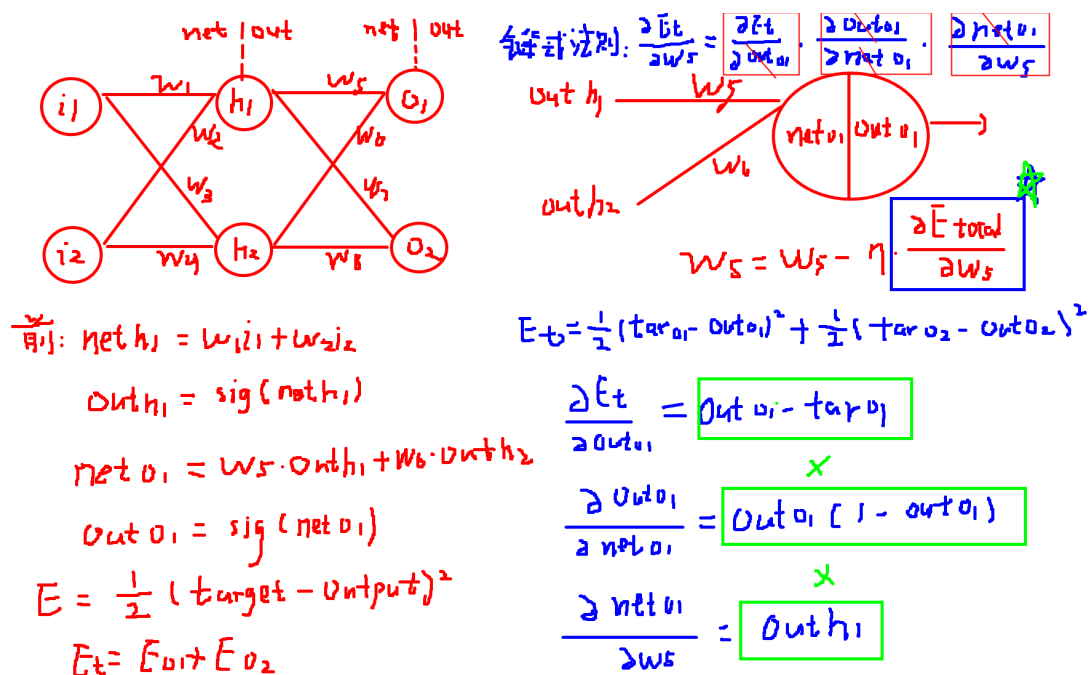 net | out
net | out
i1
w1
h1
w5
o1
w2
w6
w3
w7
i2
w4
h2
w8
o2
前: net h1 = w1i1 + w2i2
out h1 = sig(net h1)
net o1 = w5·out h1 + w6·out h2
out o1 = sig(net o1)
E = 1/2 (target - output)²
Et = Eo1 + Eo2
链式法则: ∂Et/∂w5 = ∂Et/∂out o1 · ∂out o1/∂net o1 · ∂net o1/∂w5
out h1
w5
net o1 | out o1
w6
out h2
w5 = w5 - η· ∂E total/∂w5
Et = 1/2 (tar o1 - out o1)² + 1/2 (tar o2 - out o2)²
∂Et/∂out o1 = out o1 - tar o1
×
∂out o1/∂net o1 = out o1 (1 - out o1)
×
∂net o1/∂w5 = out h1